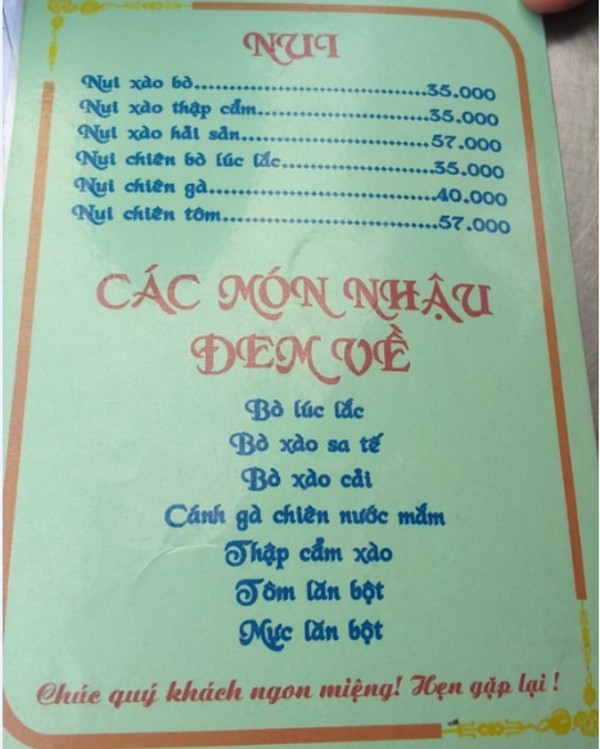 NUI
Nui xào bò................................35.000
Nui xào thập cẩm........................35.000
Nui xào hải sản...........................57.000
Nui chiên bò lúc lắc.....................35.000
Nui chiên gà................................40.000
Nui chiên tôm..............................57.000
CÁC MÓN NHẬU
ĐEM VỀ
Bò lúc lắc
Bò xào sa tế
Bò xào cải
Cánh gà chiên nước mắm
Thập cẩm xào
Tôm lăn bột
Mực lăn bột
Chúc quý khách ngon miệng! Hẹn gặp lại !